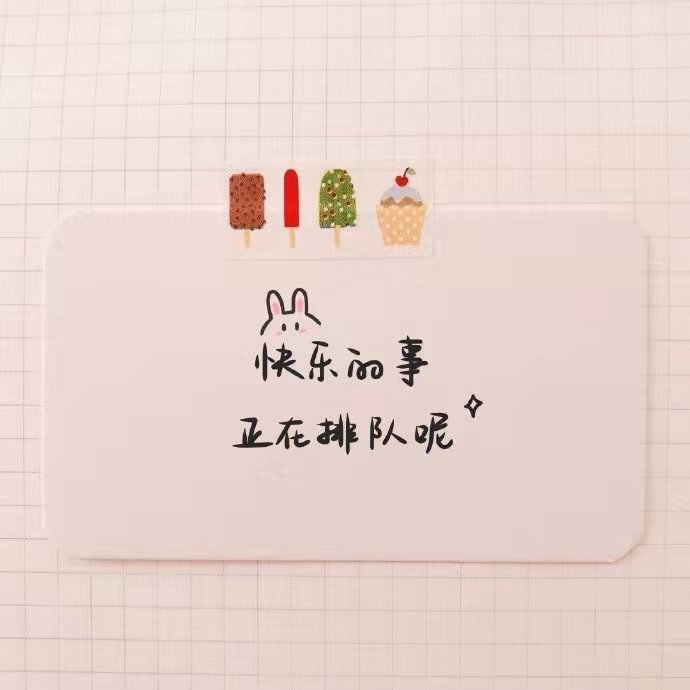 快乐的事
正在排队呢